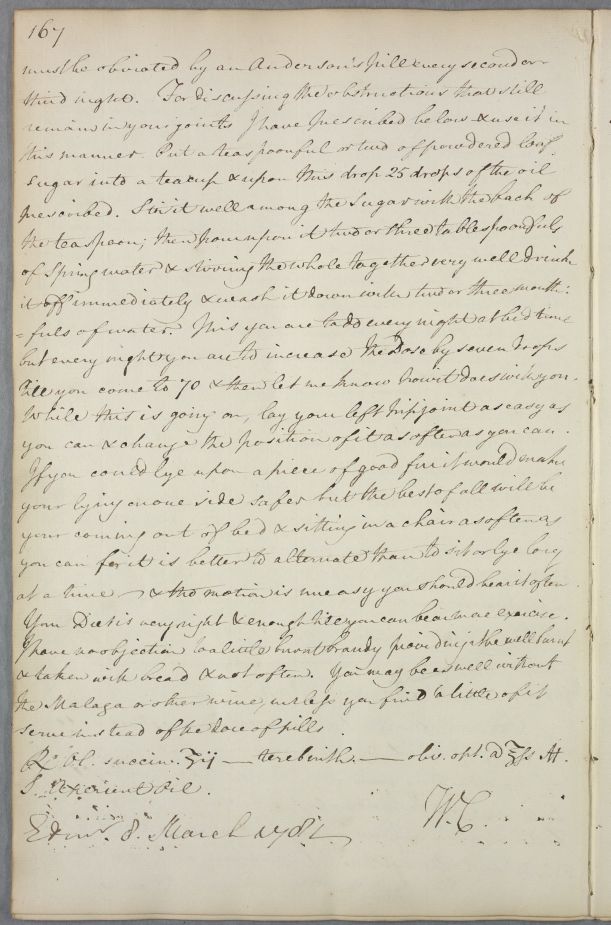 167
must be obviated by an Anderson's pill every second or
third night. For discussing the obstructions that still
remain in your joints I have prescribed below & use it in
this manner. Put a teaspoonful or two of powdered loaf
sugar into a teacup & upon this drop 25 drops of the oil
prescribed. Stir it well among the sugar with the back of
the teaspoon; then pour upon it two or three tablespoonfuls
of Spring water & stirring the whole together very well drink
it off immediately & wash it down with two or three mouth:
=fuls of water. This you are to do every night at bed time
but every night you are to increase the Dose by seven Drops
till you come to 70 & then let me know how it does with you.
While this is going on, lay your left hip joint as easy as
you can & change the position of it as often as you can.
If you could lye upon a piece of good fur it would make
your lying on one side safer but the best of all will be
your coming out of bed & sitting in a chair as often as
you can for it is better to alternate than to sit or lye long
at a time & tho motion is uneasy you should bear it often.
Your Diet is very right & enough till you can bear more exercise.
I have no objection to a little burnt brandy providing it be well burnt
& taken with bread & not often. You may be as well without
the Malaga or other wine, unless you find a little of it
serve instead of the dose of pills.
Rx Ol. succin. ʒij — terebinth. — oliv. opt. a ʒss M.
S. Aperient Oil.
Edinr. 8. March 1781 W.C.